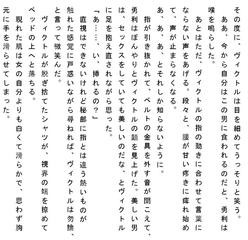 その度に、ヴィクトルは目を細めてうっそりと笑う。
ああ、今から自分はこの男に食われるのだと、勇利は
喉を鳴らした。
あとはただ、ヴィクトルの指の動きに合わせて言葉に
ならない声をあげる。段々と、腰が甘い疼きに痺れ始め
て、声が止まらなくなる。
あ、あ、あ、とそれしか知らないように。
指が引き抜かれて、ベルトの金具を外す音が聞こえて、
勇利はぼんやりとヴィクトルの顔を見上げた。美しい男
は、セックスをしていても美しいのだな、とヴィクトル
に足を抱え直されながら思う。
「あ……い、挿れるの?」
直視はできないけれど秘部に指とは違う熱いものが
触れた感覚に声が上ずれば、ヴィクトルは「勿論」
と言って微笑んだ。
ヴィクトルが脱ぎ捨てたシャツが、視界の端を掠めて
ベッドの上へと落ちる。
現れた肌は女の自分よりも白くて滑らかで、思わず胸
元に手を滑らせてしまった。